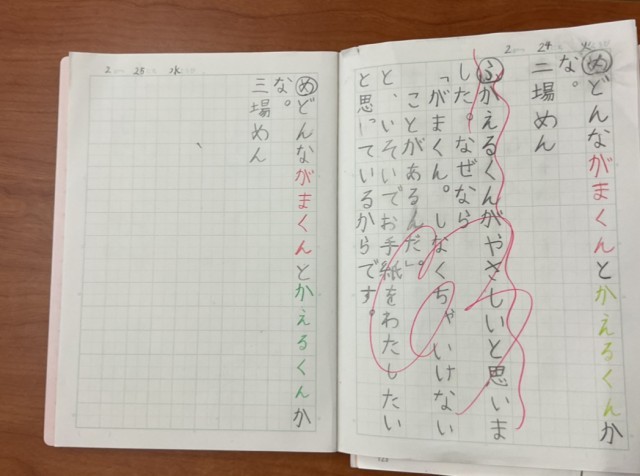 2 24 火
めどんながまくんとかえるくんか
な。
二場めん
ふかえるくんがやさしいと思いま
した。なぜなら
「がまくん。しなくちゃいけない
ことがあるんだ。」
と、いそいでお手紙をわたしたい
と思っているからです。
2 25 水
めどんながまくんとかえるくんか
な。
三場めん